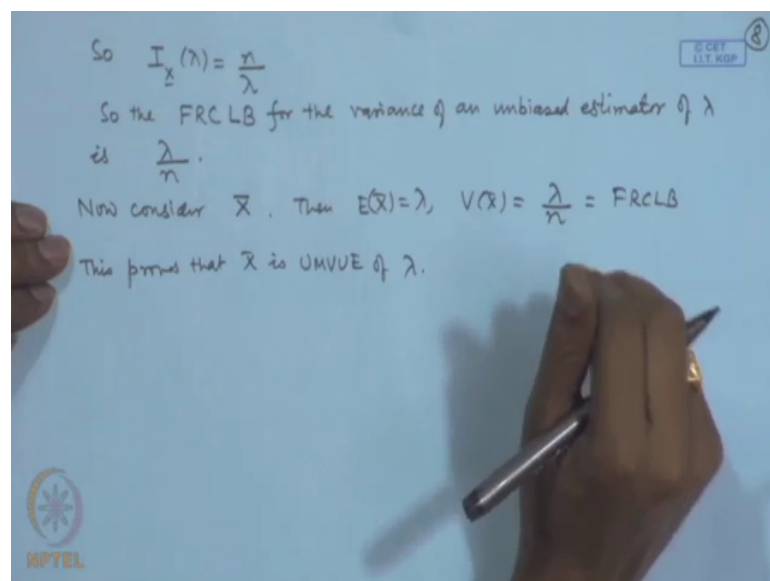 8
© CET
I.I.T. KGP
So I_X̲ (λ) = n/λ
So the FRCLB for the variance of an unbiased estimator of λ
is λ/n.
Now consider X̄. Then E(X̄) = λ, V(X̄) = λ/n = FRCLB
This proves that X̄ is UMVUE of λ.
NPTEL